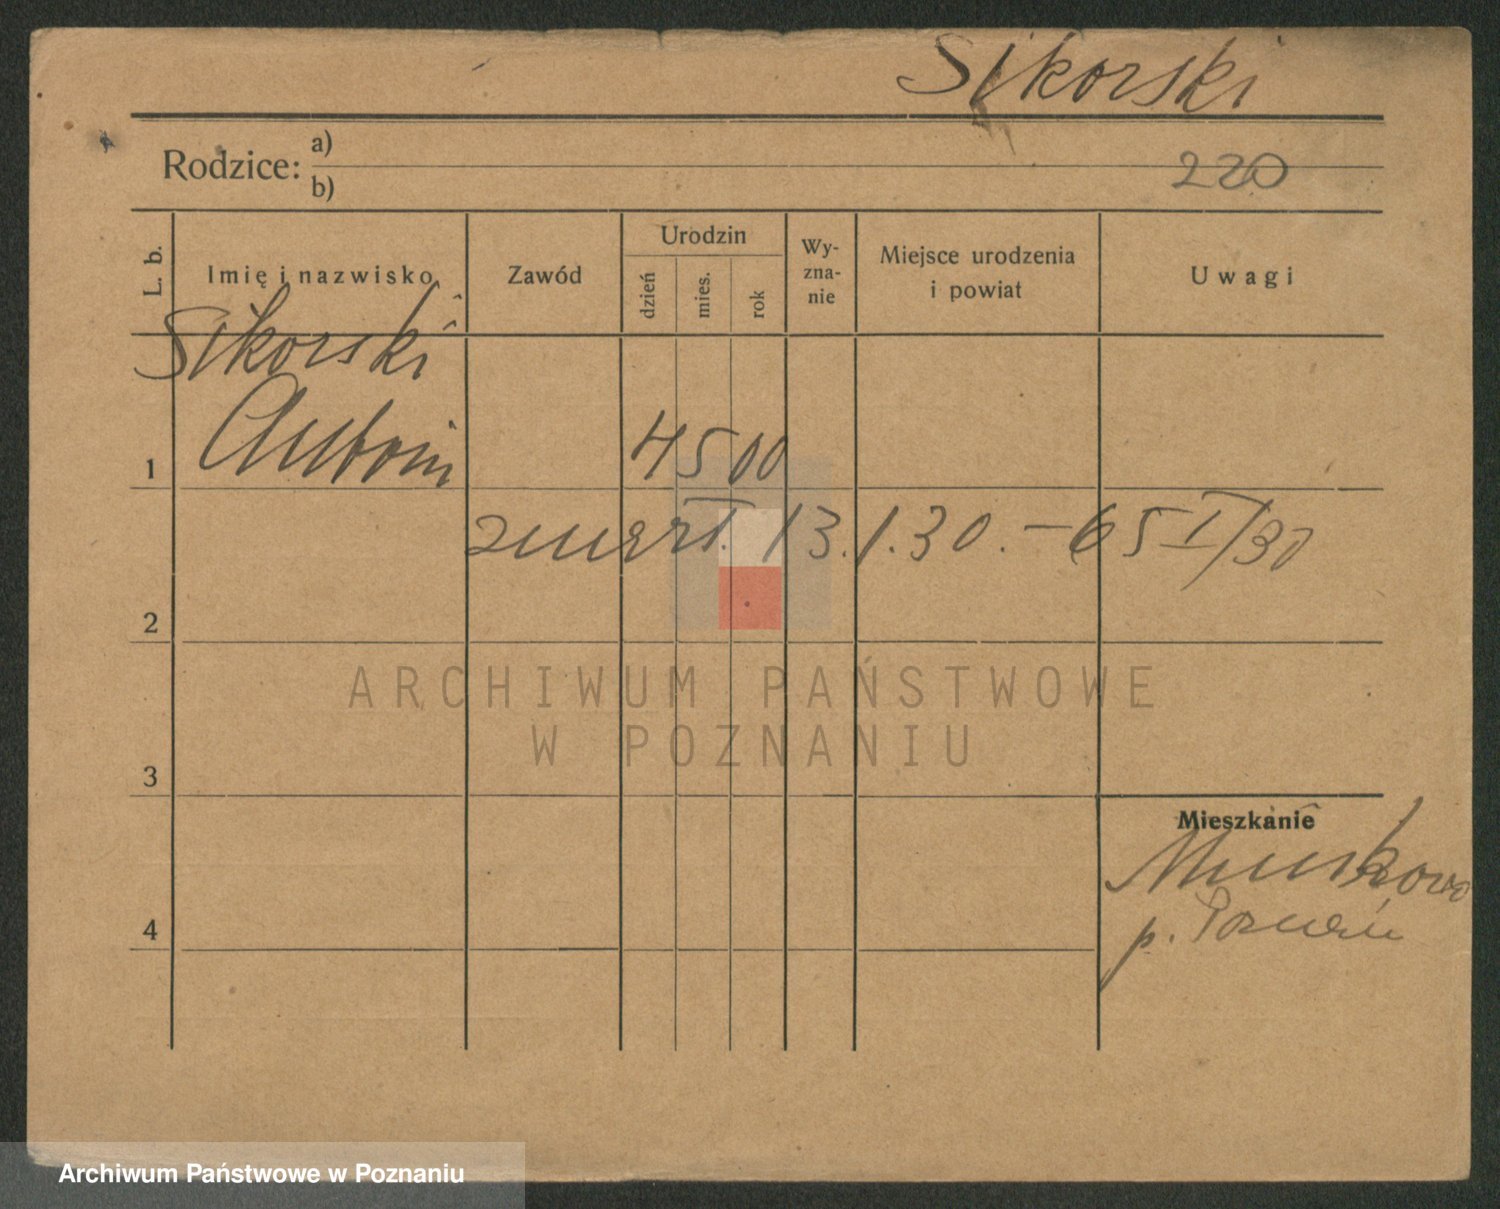 Sikorski
Rodzice: a)
b)
220
L. b.
Imię i nazwisko
Zawód
Urodzin
dzień
mies.
rok
Wy-
zna-
nie
Miejsce urodzenia
i powiat
Uwagi
Sikorski
Antoni
1
4 5 00
zmarł. 13.1.30. – 65 I/30
2
ARCHIWUM PAŃSTWOWE
W POZNANIU
3
Mieszkanie
p. Poznań
4
Archiwum Państwowe w Poznaniu